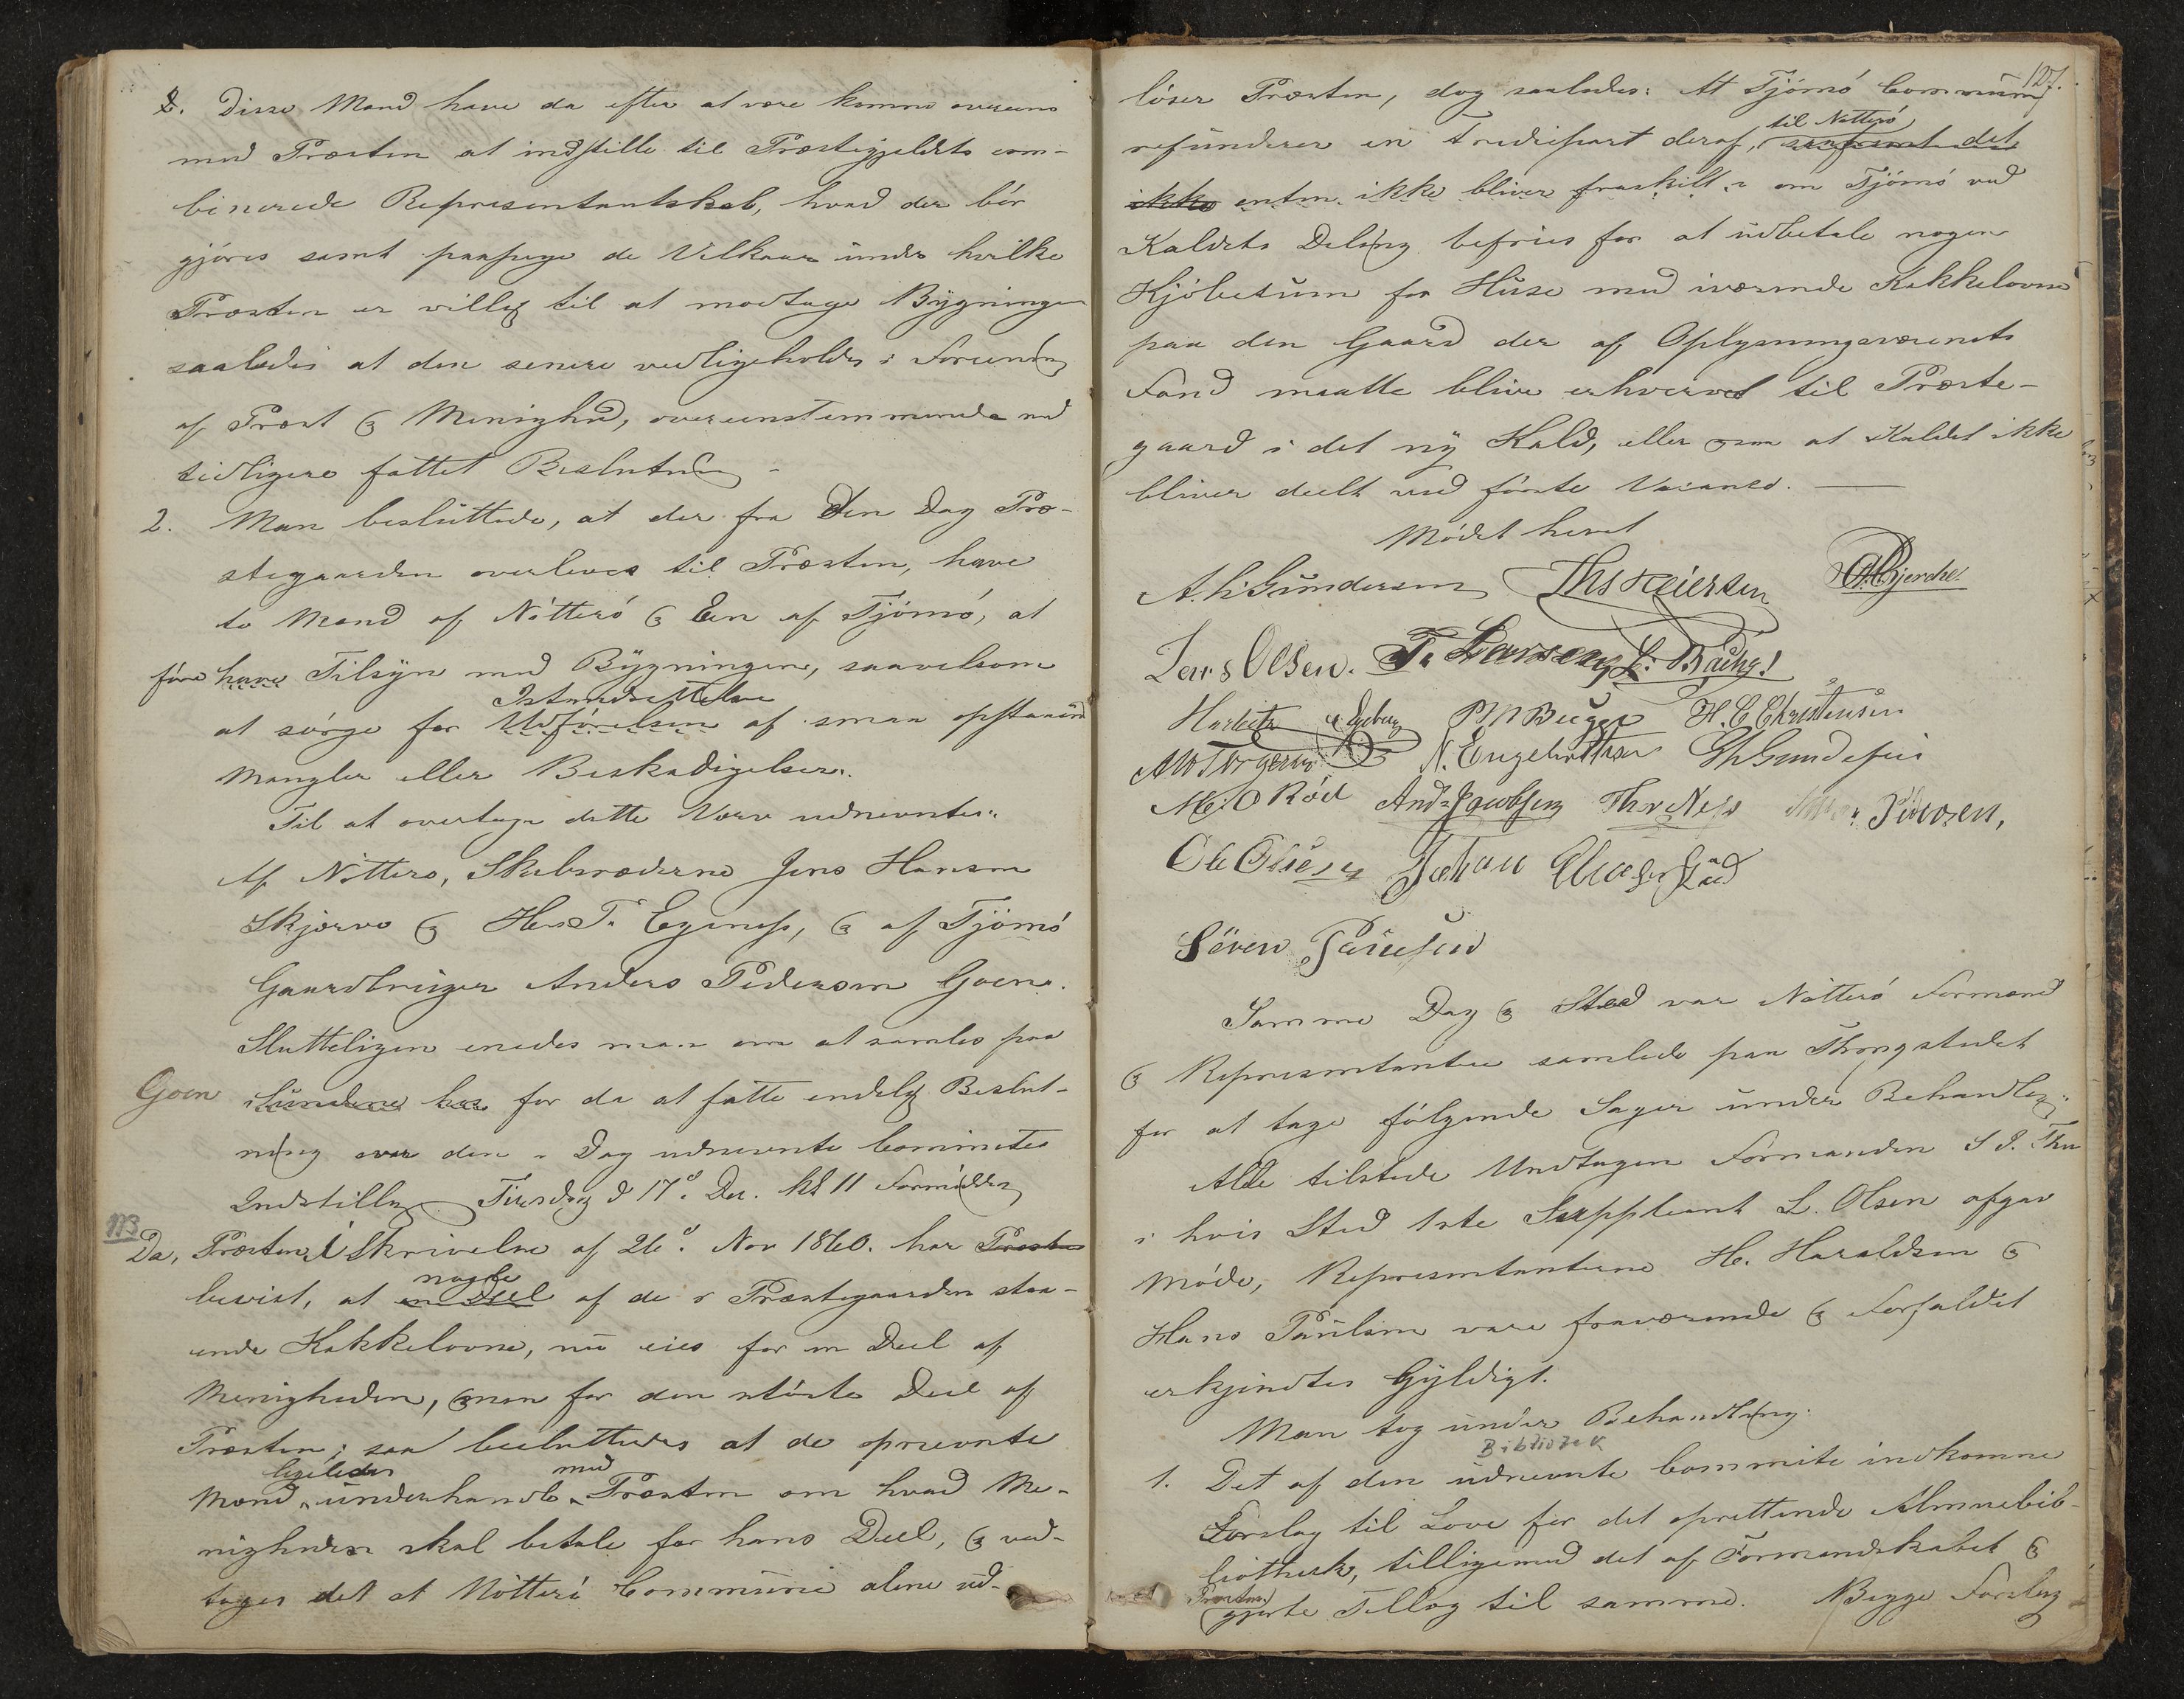 2. Disse Mænd have da efter at være komne overeens
med Præsten at indstille til Præstegjeldets com-
binerede Repræsentantskab, hvad der bör
gjöres samt paapege de Vilkaar under hvilke
Præsten er villig til at modtage Bygningen
saaledes at den senere vedligeholdes i Forening
af Præst & Menighed, overeenstemmende med
tidligere fattet Beslutning -
2. Man besluttede, at der fra den Dag Præ-
stegaarden overleveres til Præsten, have
to Mænd af Nötterö & Een af Tjömö, at
före have Tilsyn med Bygningerne, saavelsom
Istandsættelse
at sörge for Udförelsen af smaa opstaaede
Mangler eller Beskadigelser.
Til at overtage dette Værv udnevntes:
Af Nötterö, Skibsrederne Jens Hansen
Skjerve & Hans T. Egenes, & af Tjömö
Gaardbruger Anders Pedersen Goen.
Slutteligen enedes man om at samles paa
Goen Sundene her for da at fatte endelig Beslut-
ning over den i Dag udnevnte Committes
Indstilling Tirsdag d 17d. Dec. Kl 11 Formiddag
113
Da, Præsten i Skrivelse af 26d. Nov 1860. har Præsten
nogle
bevist, at en Deel af de i Præstegaarden staa-
ende Kakkelovne, nu eies for en Deel af
Menigheden, & men for den störste Deel af
Præsten; saa besluttedes at de opnevnte
ligeledes med
Mænd underhandle Præsten om hvad Me-
nigheden skal betale for hans Deel, & ved-
toges det at Nötterö Commune alene ud-
127.
löser Præsten, dog saaledes: At Tjömö Commune
til Nötterö
refunderer en Trediepart deraf, saafremt det
ikke enten ikke bliver fraskilt, om Tjömö ved
Kaldets Deling befries for at udbetale nogen
Kjöbesum for Huse med iværende Kakkelovne
paa den Gaard der af Oplysningsvæsenets
Fond maatte blive erhvervet til Præste-
gaard i det ny Kald, eller om at Kaldet ikke
bliver deelt ved förste Vacance.
Mödet hævet
A. L. Gundersen Ths Reiersen O. Bjerche
Lars Olsen. T. Larsen L. Bache
P M Bugge H. C Christensen
N. Engebretsen Gundersen
M. O Röd Ands Jacobsen Thr Ness Pedersen,
Ole Olsen Johan
Sören Paulsen
Samme Dag & Sted var Nötterö Formænd
& Repræsentanter samlede paa Thingstedet
for at tage fölgende Sager under Behandling:
Alle tilstede Undtagen Formanden S J. Thu
i hvis Sted 1ste Suppleant L. Olsen afgav
Möde, Repræsentanterne H. Haraldsen &
Hans Paulsen vare fraværende & Forfaldet
erkjendtes Gyldigt.
Man tog under Behandling:
Bibliotek
1. Det af den udnevnte Committe indkomne
Forslag til Love for det oprettende Almuebib-
liothek, tilligemed det af Formandskabet &
Præsten
gjorte Tillæg til samme. Begge Forslag